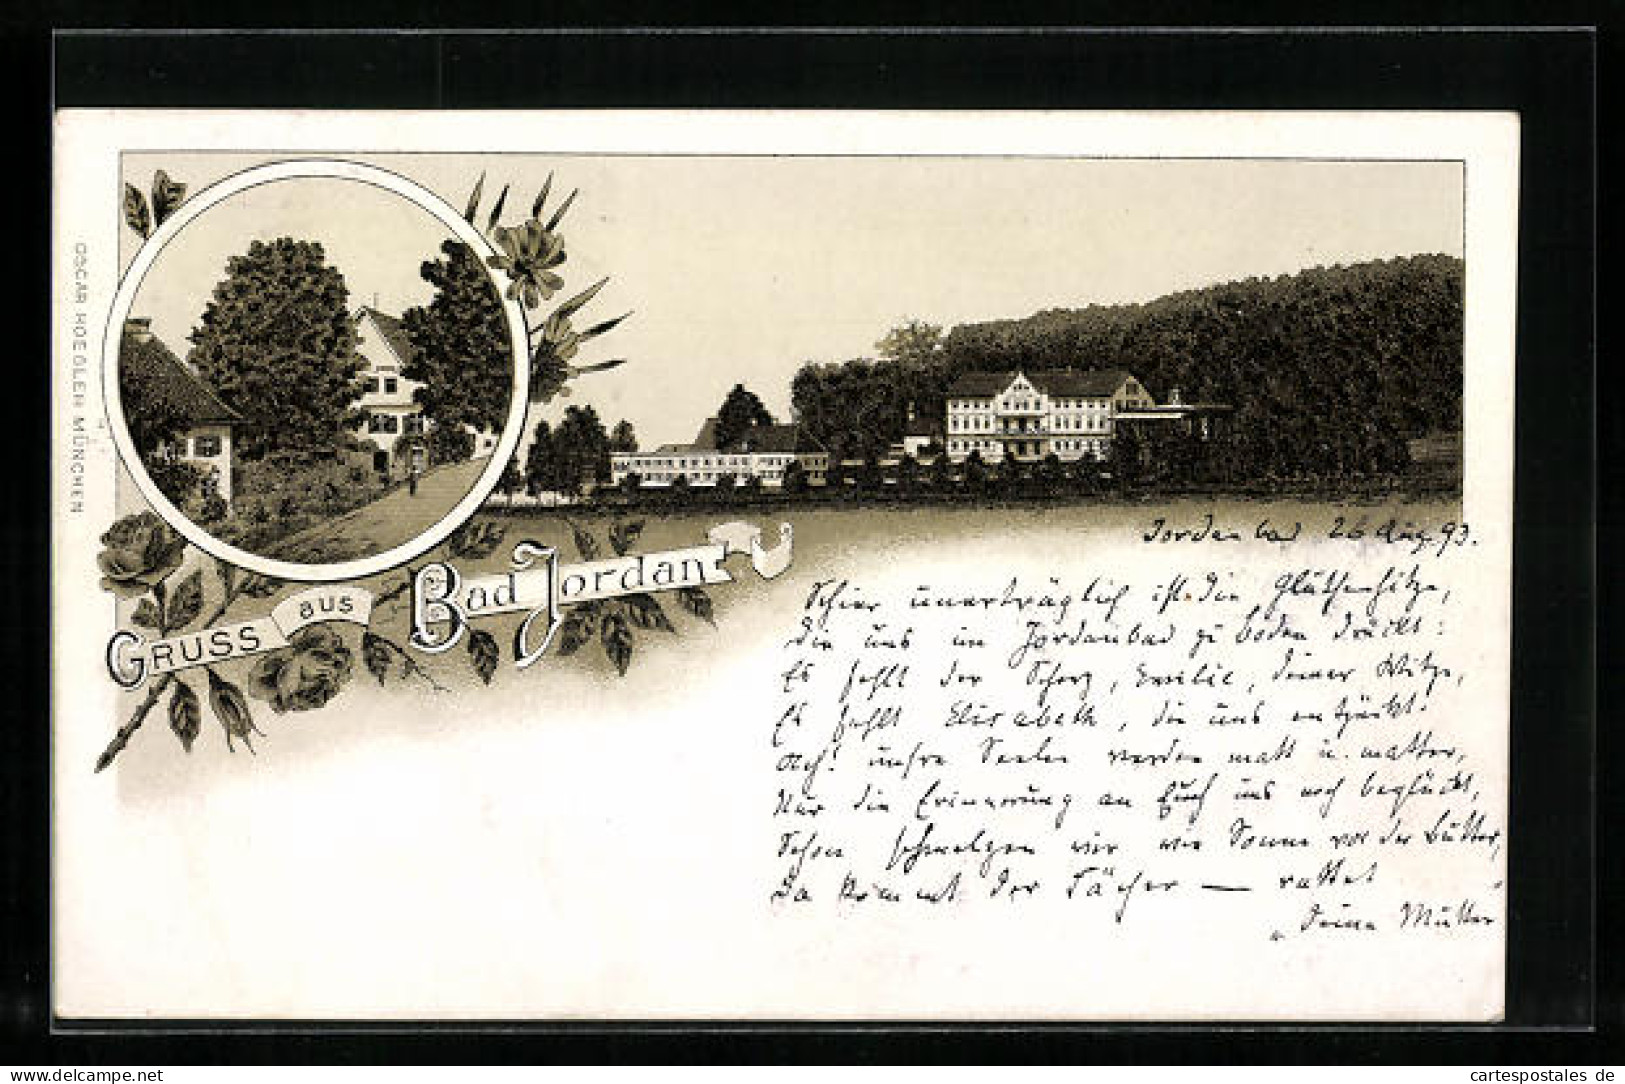 OSCAR HOEGLER MÜNCHEN
GRUSS aus Bad Jordan
Jordanbad 26 Aug. 93.
Schier unerträglich ist die Gluthenhitze,
die uns im Jordanbad zu boden drückt:
Es fehlt der Scherz, Emilie, deiner Witze,
Es fehlt Elisabeth, die uns entzückt!
Ach! unsre Seelen werden matt u. matter,
Nur die Erinnerung an Euch uns noch beglückt,
Schon schmelzen wir wie Sonne vor der Butter,
Da kömmt der Fächer — rettet
"deine Mutter
cartespostales.de